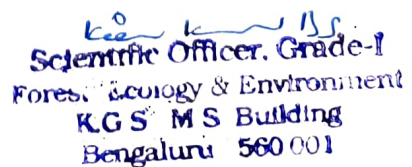 Scientific Officer. Grade-I
Forest Ecology & Environment
K.G S M S Building
Bengaluru 560 001